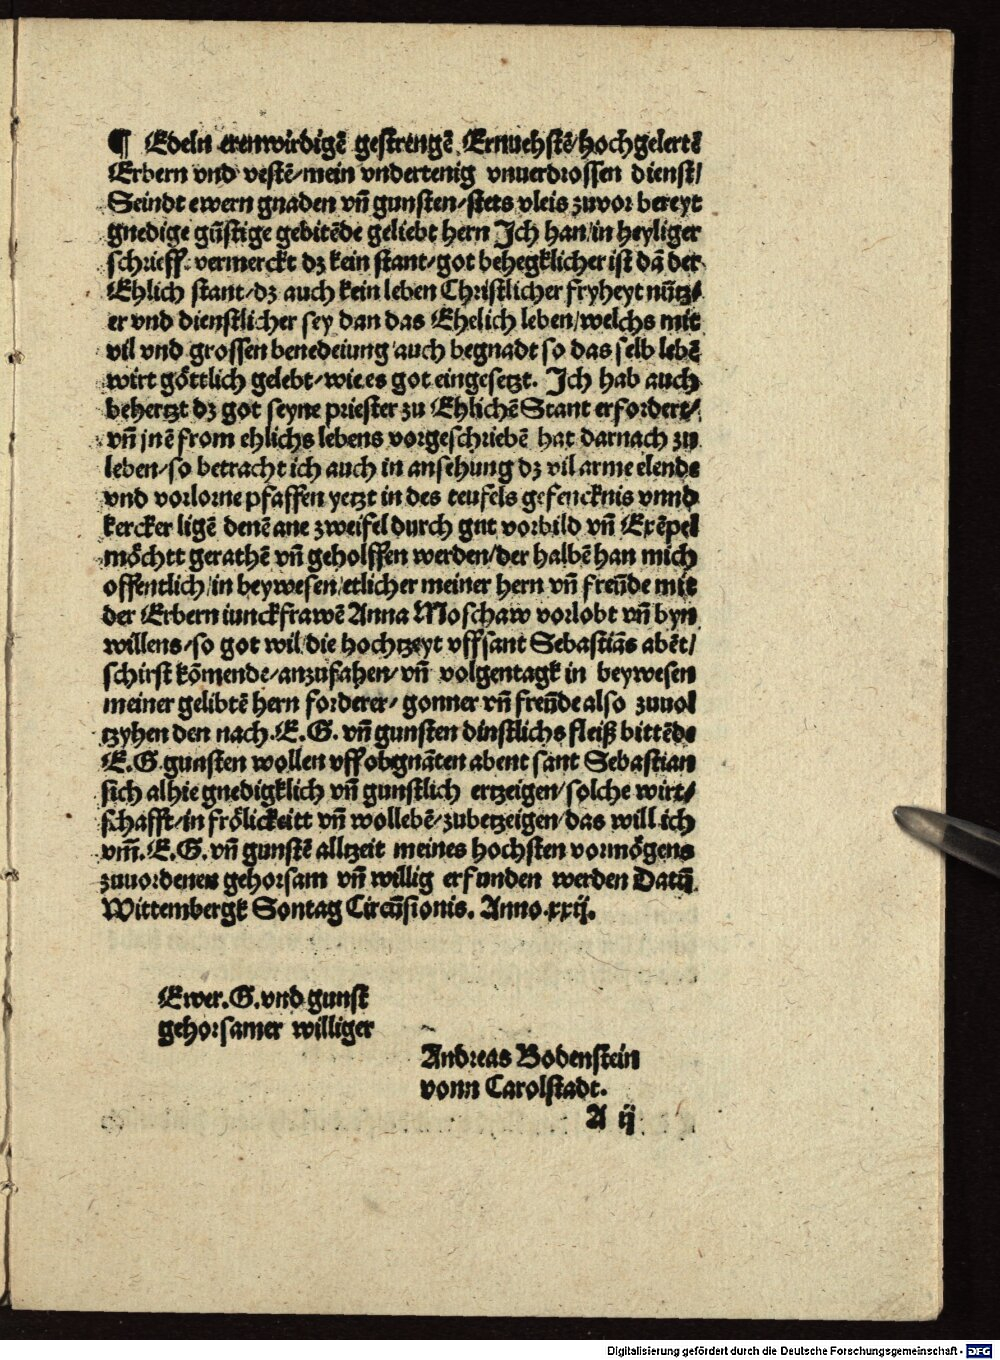 ¶ Edeln erenwirdigē gestrengē Ernuehstē/hochgelertē
Erbern vnd vestē/mein vndertenig vnuerdrossen dienst/
Seindt ewern gnaden vn̄ gunsten/stets vleis zuvor bereyt
gnedige gūstige gebitēde geliebt hern Jch han/in heyliger
schrieff vermerckt dz kein stant/got behegklicher ist dā der
Ehlich stant/dz auch kein leben Christlicher fryheyt nūtz/
er vnd dienstlicher sey dan das Ehelich leben/welchs mit
vil vnd grossen benedeiung auch begnadt so das selb lebē
wirt göttlich gelebt/wie es got eingesetzt. Jch hab auch
behertzt dz got seyne priester zu Ehlichē Stant erfordert/
vn̄ jnē from ehlichs lebens vorgeschriebē hat darnach zu
leben/so betracht ich auch in ansehung dz vil arme elende
vnd vorlorne pfaffen yetzt in des teufels gefencknis vnnd
kercker ligē denē ane zweifel durch gut vorbild vn̄ Exēpel
möchtt gerathē vn̄ geholffen werden/der halbē han mich
offentlich/in beywesen/etlicher meiner hern vn̄ freūde mit
der Erbern iunckfrawē Anna Moschaw vorlobt vn̄ byn
willens/so got wil/die hochtzeyt vff sant Sebastiās abēt/
schirst kōmende/anzufahen/vn̄ volgentagk in beywesen
meiner gelibtē hern forderer/gonner vn̄ freūde also zuuol
tzyhen den nach.E.G. vn̄ gunsten dinstlichs fleiß bittēde
E.G.gunsten wollen vff obgnāten abent sant Sebastian
sich alhie gnedigklich vn̄ gunstlich ertzeigen/solche wirt/
schafft/in frölickeitt vn̄ wollebē/zubetzeigen/das will ich
vm̄.E.G.vn̄ gunstē alltzeit meines hochsten vormögens
zuuordenen gehorsam vn̄ willig erfunden werden Datū
Wittembergk Sontag Circūsionis. Anno.xxij.
Ewer.G.vnd gunst
gehorsamer williger
Andreas Bodenstein
vonn Carolstadt.
A ij
Digitalisierung gefördert durch die Deutsche Forschungsgemeinschaft - DFG